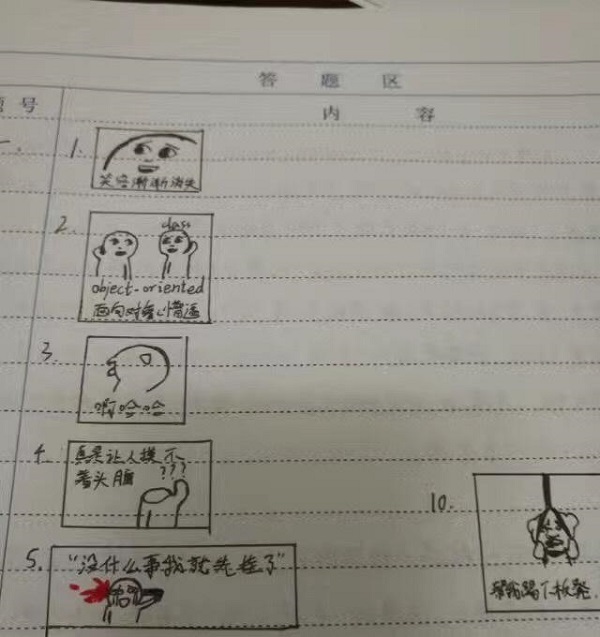 答 题 区
题号 内 容
一. 1.
笑容渐渐消失
2.
class
object-oriented
面向对象心懵逼
3.
啊哈哈
4.
真是让人摸不
着头脑
???
5.
“没什么事我就先挂了”
10.
帮我踢下板凳